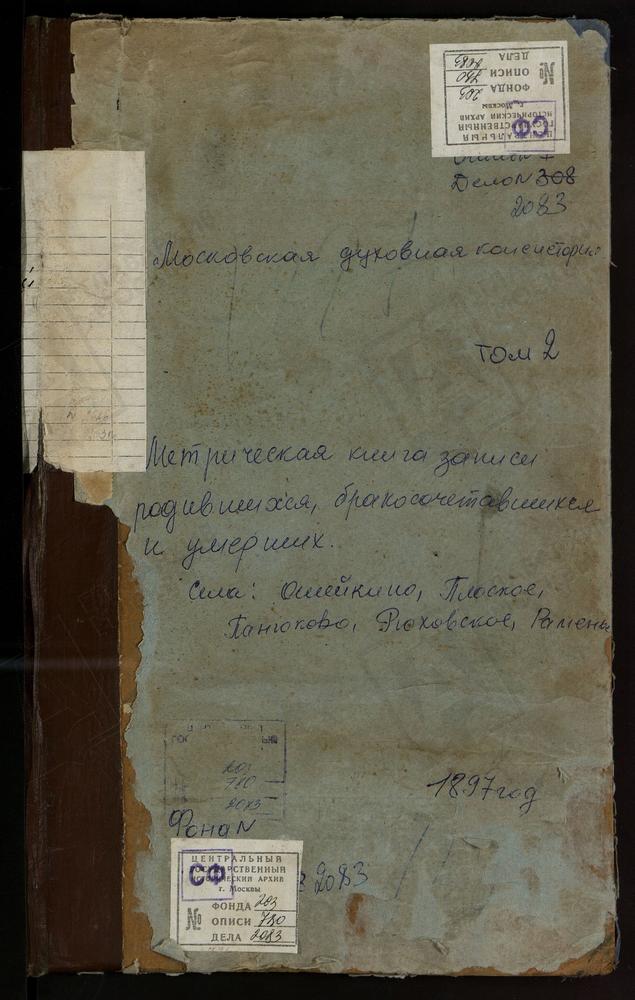 №
ДЕЛА 2083
ОПИСИ 780
ФОНДА 203
г. Москвы
ИСТОРИЧЕСКИЙ АРХИВ
ГОСУДАРСТВЕННЫЙ
ЦЕНТРАЛЬНЫЙ
СФ
Дело N 308
2083
Московская духовная консистория
том 2
Метрическая книга записи
родившихся, бракосочетавшихся
и умерших.
Села: Ошейкино, Плоское,
Панюково, Рюховское, Рамены
203
780
2083
1897 год
Фонд N
2083
СФ
ЦЕНТРАЛЬНЫЙ
ГОСУДАРСТВЕННЫЙ
ИСТОРИЧЕСКИЙ АРХИВ
г. Москвы
№
ФОНДА 203
ОПИСИ 780
ДЕЛА 2083